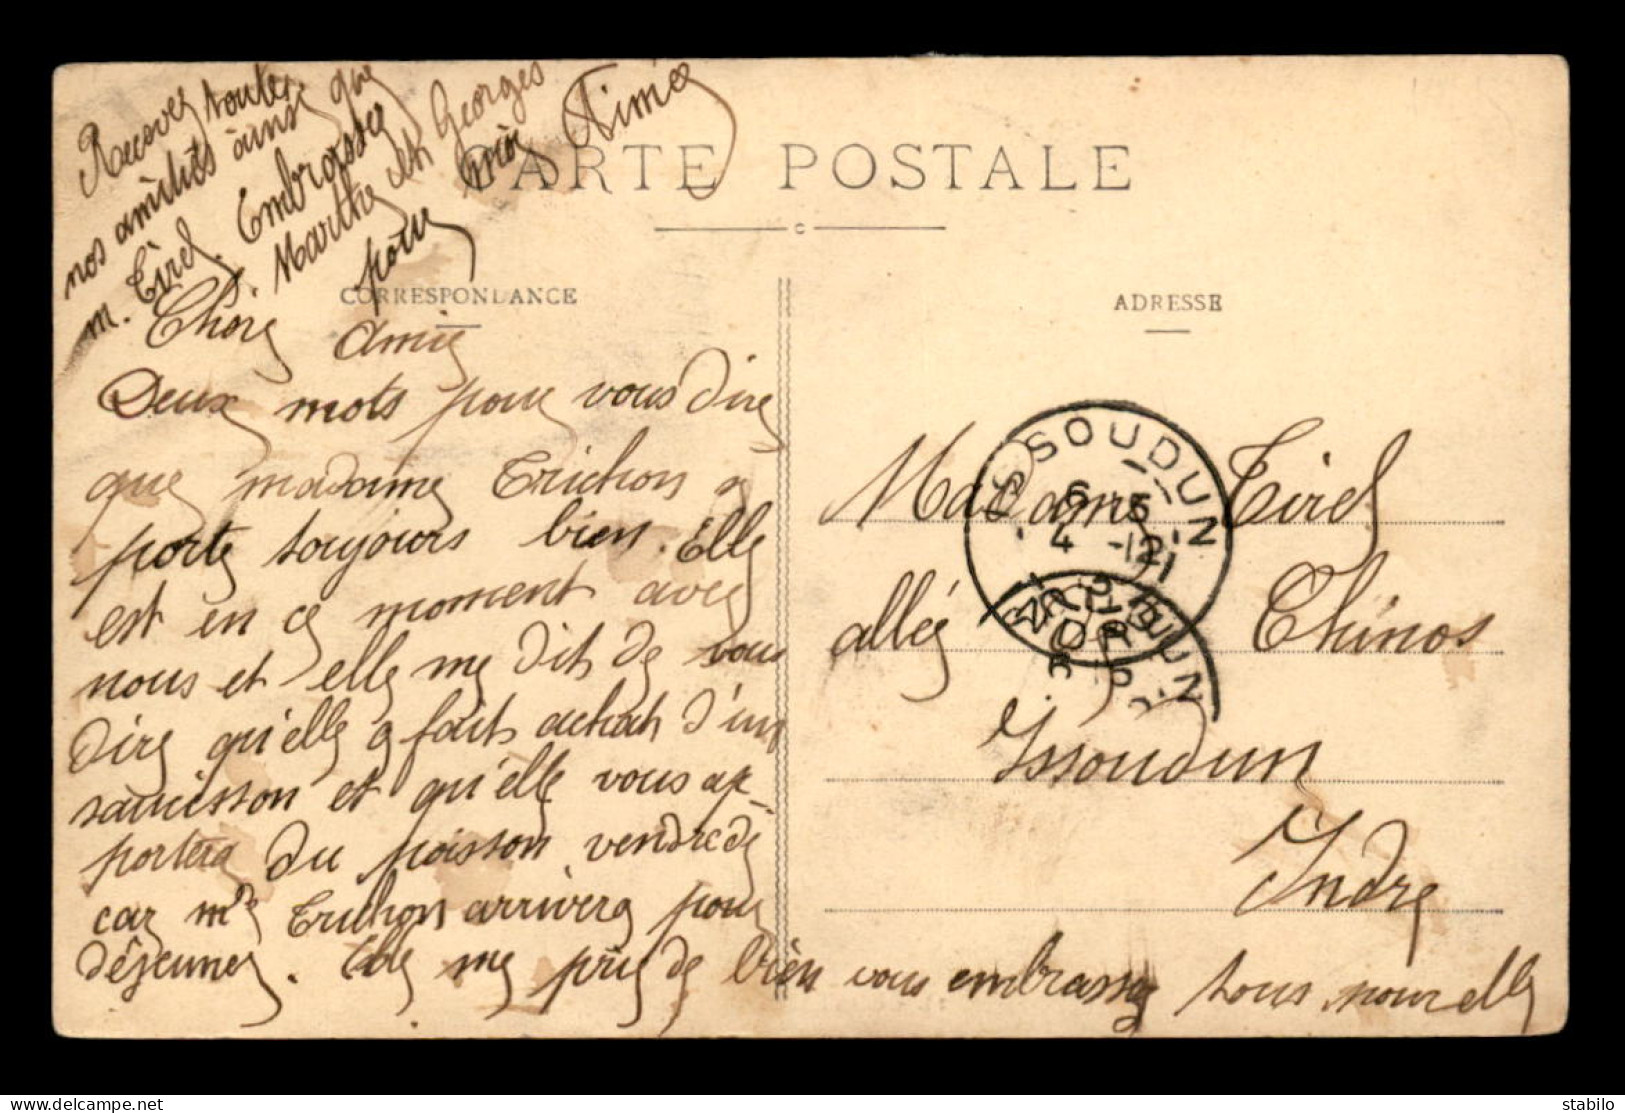 Recevez toutes
nos amitiés ainsi que
m. Tirel. Embrassez
Marthe et Georges
pour moi Aimée
CARTE POSTALE
CORRESPONDANCE
ADRESSE
Chère Amie
Deux mots pour vous dire
que madame Trichon se
porte toujours bien. Elle
est en ce moment avec
nous et elle me dit de vous
dire qu'elle a fait achat d'un
saucisson et qu'elle vous ap-
portera du poisson vendredi
car me Trichon arrivera pour
déjeuner. Elle me prie de bien vous embrasser tous pour elle
Madame Tirel
allée Chinos
Issoudun
Indre
ISSOUDUN
6 5
4 -12
INDRE
stabilo